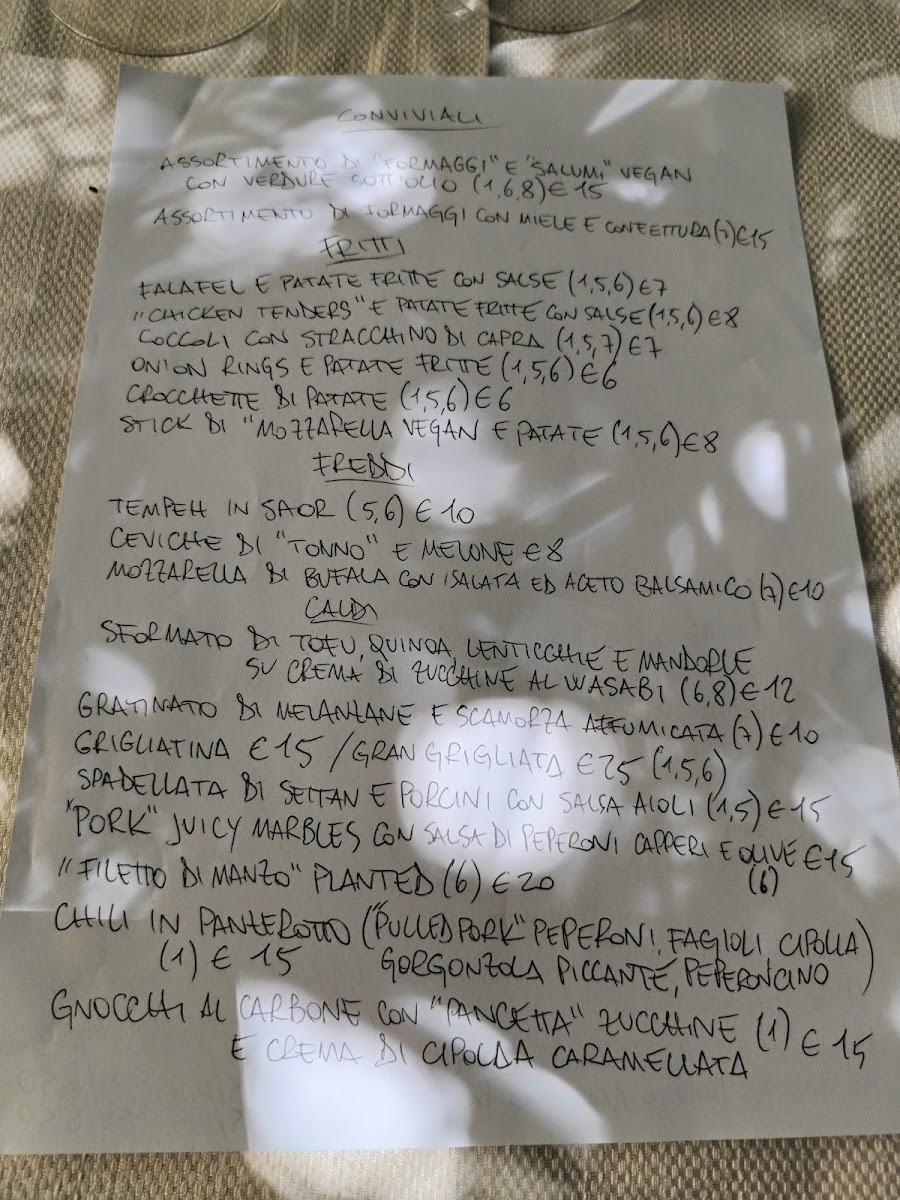 CONVIVIALI
ASSORTIMENTO DI "FORMAGGI" E "SALUMI" VEGAN
CON VERDURE SOTT'OLIO (1,6,8) € 15
ASSORTIMENTO DI FORMAGGI CON MIELE E CONFETTURA (7) € 15
FRITTI
FALAFEL E PATATE FRITTE CON SALSE (1,5,6) € 7
"CHICKEN TENDERS" E PATATE FRITTE CON SALSE (1,5,6) € 8
COCCOLI CON STRACCHINO DI CAPRA (1,5,7) € 7
ONION RINGS E PATATE FRITTE (1,5,6) € 6
CROCCHETTE DI PATATE (1,5,6) € 6
STICK DI "MOZZARELLA VEGAN E PATATE (1,5,6) € 8
FREDDI
TEMPEH IN SAOR (5,6) € 10
CEVICHE DI "TONNO" E MELONE € 8
MOZZARELLA DI BUFALA CON ISALATA ED ACETO BALSAMICO (7) € 10
CALDI
SFORMATO DI TOFU, QUINOA, LENTICCHIE E MANDORLE
SU CREMA DI ZUCCHINE AL WASABI (6,8) € 12
GRATINATO DI MELANZANE E SCAMORZA AFFUMICATA (7) € 10
GRIGLIATINA € 15 / GRAN GRIGLIATA € 25 (1,5,6)
SPADELLATA DI SEITAN E PORCINI CON SALSA AIOLI (1,5) € 15
"PORK" JUICY MARBLES CON SALSA DI PEPERONI CAPPERI E OLIVE € 15
(6)
"FILETTO DI MANZO" PLANTED (6) € 20
CHILI IN PANZEROTTO ("PULLED PORK" PEPERONI, FAGIOLI, CIPOLLA)
(1) € 15 GORGONZOLA PICCANTE, PEPERONCINO
GNOCCHI AL CARBONE CON "PANCETTA" ZUCCHINE (1) € 15
E CREMA DI CIPOLLA CARAMELLATA